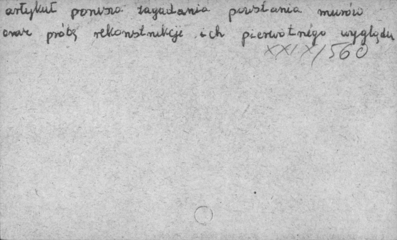 artykuł porusza zagadania powstania murów
oraz próbę rekonstrukcje ich pierwotnego wyglądu
XXIX/560